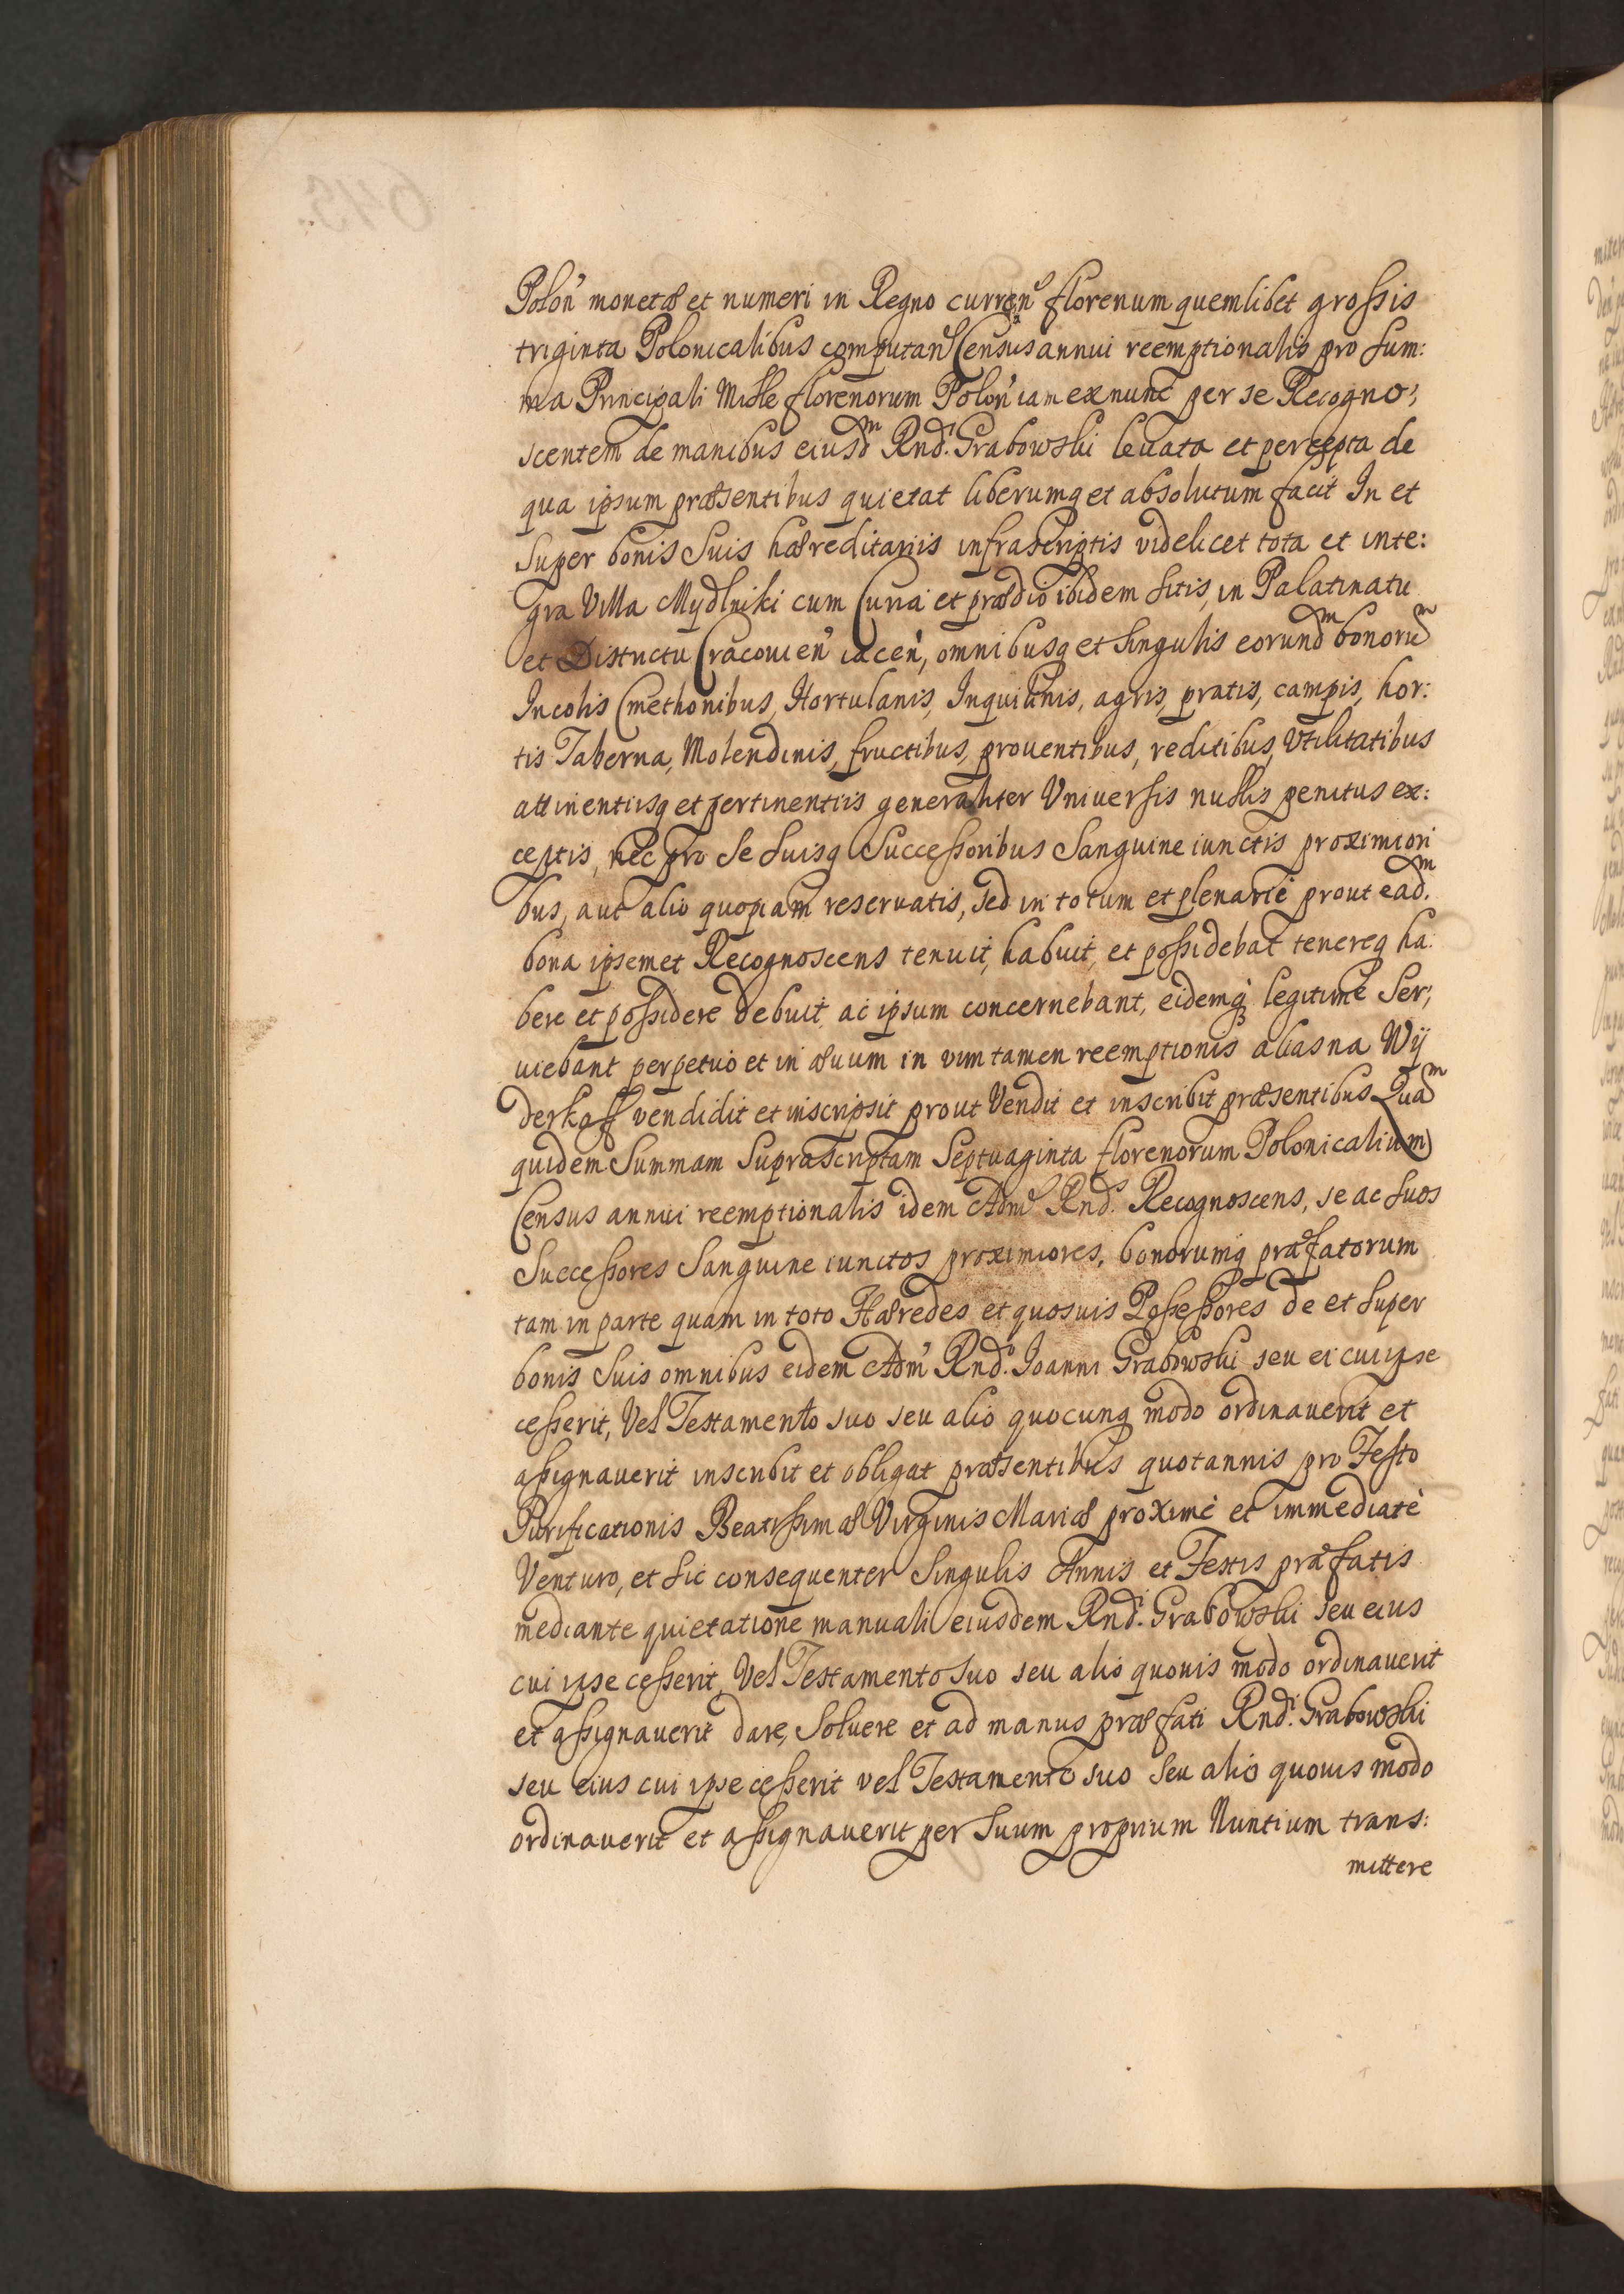 Polon̄ monetæ et numeri in Regno curren̄ florenum quemlibet grossis
triginta Polonicalibus computan̄ Census annui reemptionalis pro sum:
ma Principali Mille florenorum Polon̄ iam ex nunc per se Recogno:
scentem de manibus eiusdᵐ Rndⁱ. Grabowski levata et percepta de
qua ipsum præsentibus quietat liberumq et absolutum facit In et
super bonis suis hæreditariis infrascriptis videlicet tota et inte:
gra Villa Mydlniki cum Curia et prædio ibidem sitis, in Palatinatu
et Districtu Cracouien̄ iacen̄, omnibusq et singulis eorundᵐ bonoruᵐ
Incolis Cmethonibus, Hortulanis, Inquilinis, agris, pratis, campis, hor:
tis Taberna, Molendinis, fructibus, prouentibus, reditibus, Vtilitatibus
attinentiisq et pertinentiis generaliter Vniuersis nullis penitus ex:
ceptis, nec pro se suisq Successoribus Sanguine iunctis proximiori
bus, aut alio quopiam reseruatis, sed in totum et plenariè prout eadᵐ.
bona ipsemet Recognoscens tenuit, habuit, et possidebat tenereq ha:
bere et possidere debuit, ac ipsum concernebant, eidemq legitimè ser:
uiebant perpetuò et in æuum in vim tamen reemptionis alias na Wÿ
derkaff vendidit et inscripsit prout Vendit et inscribit præsentibus Quaᵐ
quidem Summam Suprascriptam Septuaginta florenorum Polonicalium
Census annui reemptionalis idem Admᵈ Rndˢ. Recognoscens, se ac suos
Successores Sanguine iunctos proximiores, bonorumq præfatorum
tam in parte quam in toto Hæredes et quosuis Possessores de et super
bonis suis omnibus eidem Adm̄ Rndº. Ioanni Grabowski seu ei cui ipse
cesserit, Vel Testamento suo seu alio quocunq modo ordinauerit et
assignauerit inscribit et obligat præsentibus quotannis pro Festo
Purificationis Beatissimæ Virginis Mariæ proximè et immediatè
Venturo, et sic consequenter singulis Annis et Festis præfatis
mediante quietatione manuali eiusdem Rndⁱ. Grabowski seu eius
cui ipse cesserit, Vel Testamento suo seu alio quouis modo ordinauerit
et assignauerit dare, soluere et ad manus præfati Rndⁱ. Grabowski
seu eius cui ipse cesserit vel Testamento suo seu alio quouis modo
ordinauerit et assignauerit per suum proprium Nuntium trans:
mittere